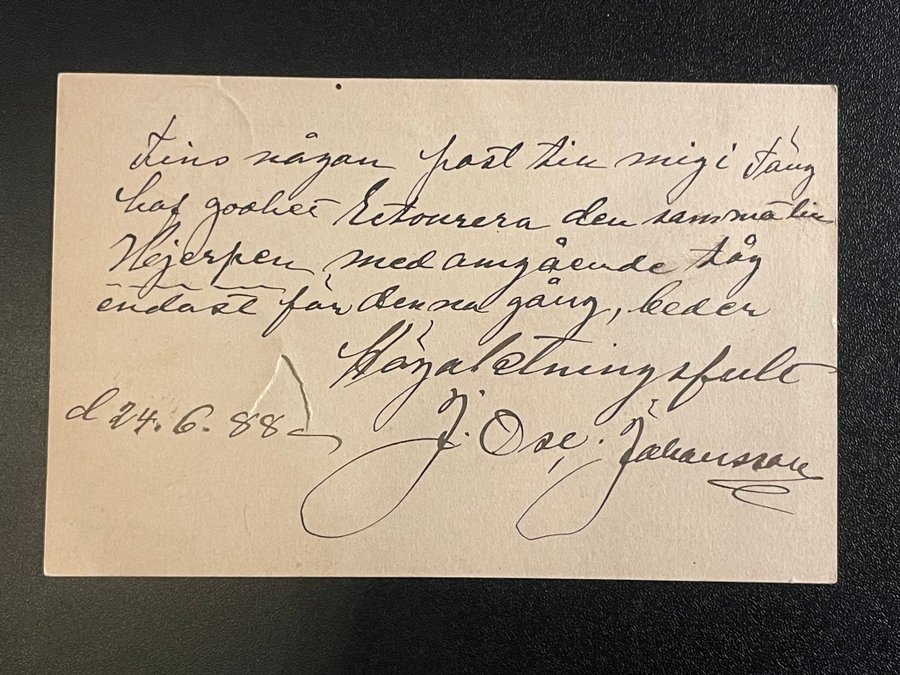 Fins någon post till mig i Fång
haf godhet Retournera den samma till
Hjerpen med omgående tåg
endast för denna gång, beder
Högaktningsfult
d 24. 6. 88 J. Osc. Johansson